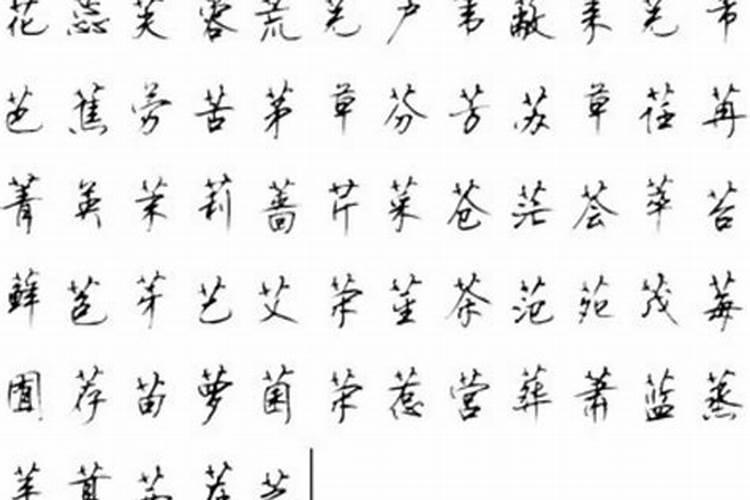 花蕊芙蓉荒芜芦苇蔽莱芜芾
芭蕉劳苦茅草芬芳苏草荏苒
菁英茉莉蔷芹菜苍茫荟萃苔
藓苞芽艺艾荣茎茶范苑茂莓
荐苗萝茵荣惹营葬萧蓝蒸